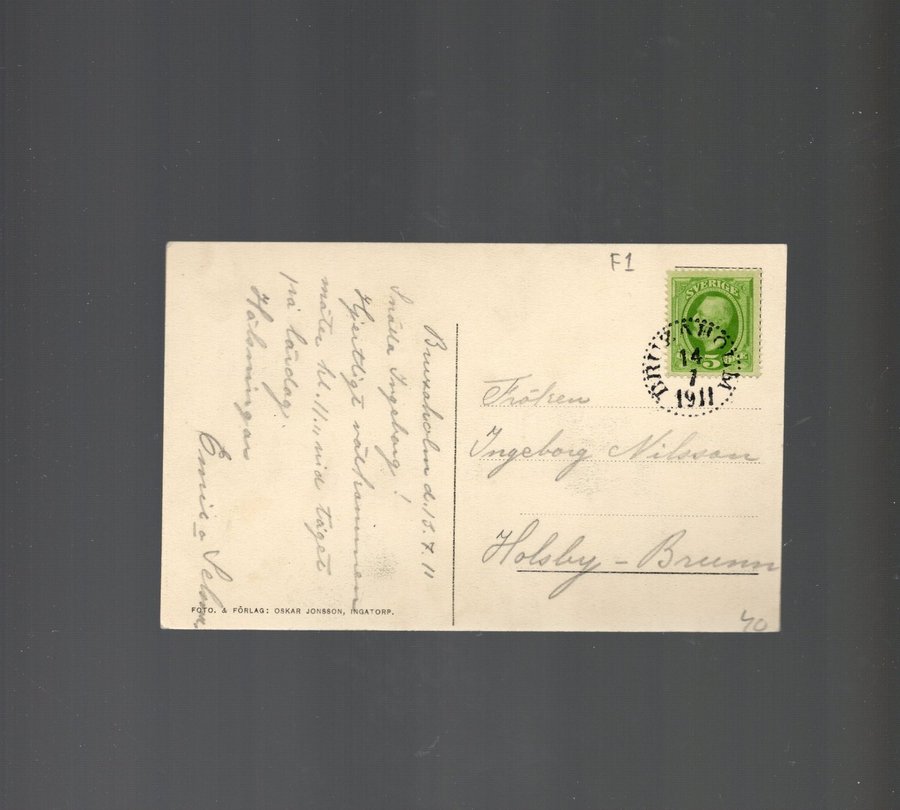 Bruzaholm d. 13.7.11
Snälla Ingeborg!
Hjertligt välkommen
möter kl. 11 vid tåget
på lördag.
Hälsningar
FOTO. & FÖRLAG: OSKAR JONSSON, INGATORP.
F1
SVERIGE
5
BRUZAHOLM
14
7
1911
Fröken
Ingeborg Nilsson
Holsby-Brunn
40